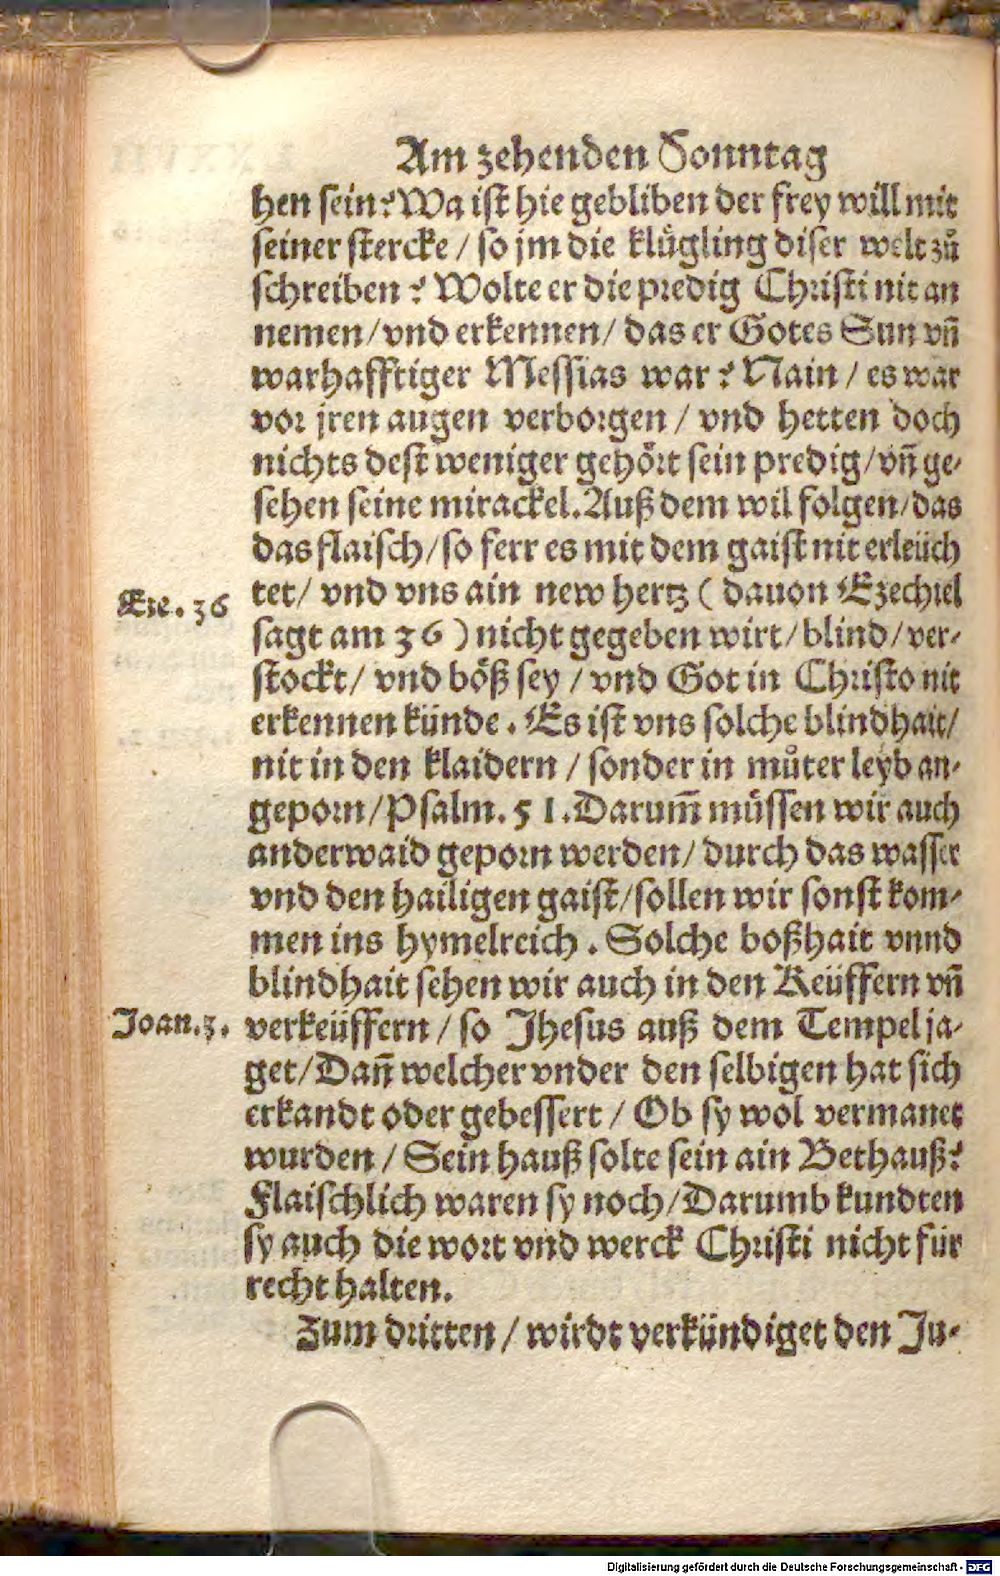 Am zehenden Sonntag
hen sein? Wa ist hie gebliben der frey will mit
seiner stercke / so jm die klügling diser welt zů
schreiben? Wolte er die predig Christi nit an
nemen / vnd erkennen / das er Gotes Sun vñ
warhafftiger Messias war? Nain / es war
vor jren augen verborgen / vnd hetten doch
nichts dest weniger gehört sein predig / vñ ge-
sehen seine mirackel. Auß dem wil folgen / das
das flaisch / so ferr es mit dem gaist nit erleüch
tet / vnd vns ain new hertz ( dauon Ezechiel
Eze. 36
sagt am 36 ) nicht gegeben wirt / blind / ver-
stockt / vnd böß sey / vnd Got in Christo nit
erkennen künde. Es ist vns solche blindhait /
nit in den klaidern / sonder in můter leyb an-
geporn / Psalm. 51. Darum̃ müssen wir auch
anderwaid geporn werden / durch das wasser
vnd den hailigen gaist / sollen wir sonst kom-
men ins hymelreich. Solche boßhait vnnd
blindhait sehen wir auch in den Keüffern vñ
Joan. 3.
verkeüffern / so Jhesus auß dem Tempel ja-
get / Dañ welcher vnder den selbigen hat sich
erkandt oder gebessert / Ob sy wol vermanet
wurden / Sein hauß solte sein ain Bethauß?
Flaischlich waren sy noch / Darumb kundten
sy auch die wort vnd werck Christi nicht für
recht halten.
Zum dritten / wirdt verkündiget den Ju-
Digitalisierung gefördert durch die Deutsche Forschungsgemeinschaft - DFG